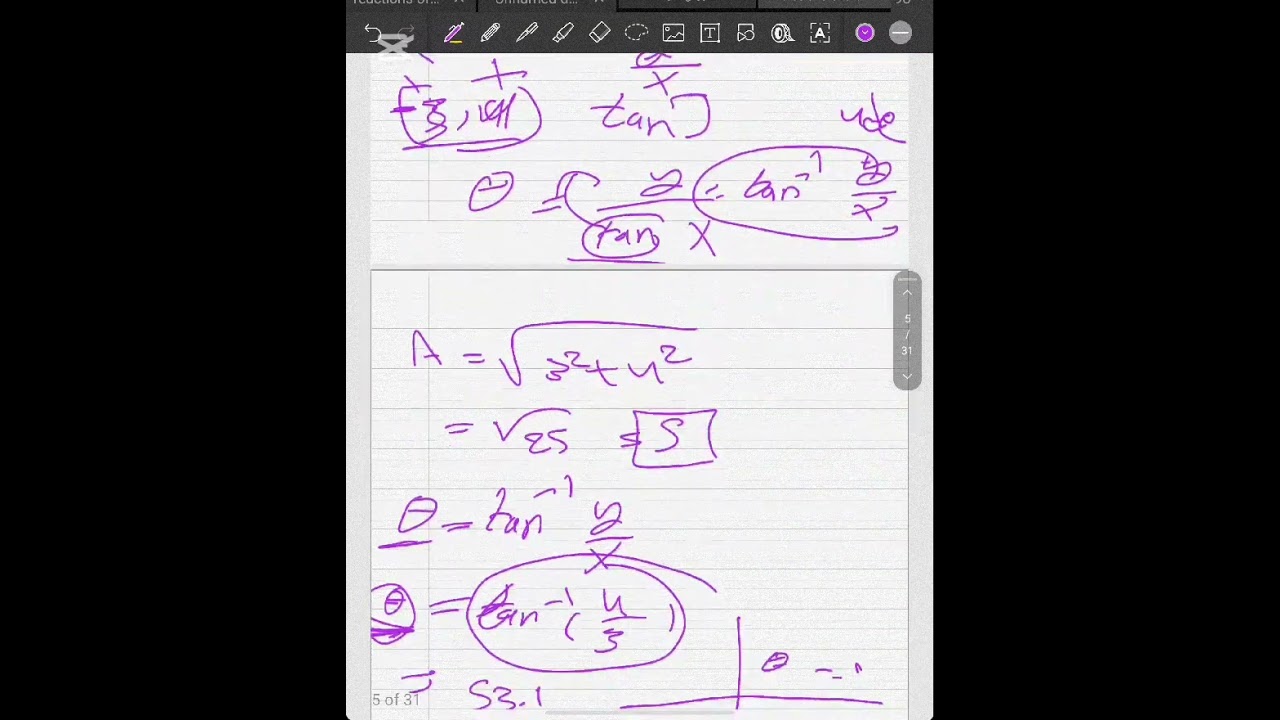 x
(-3, 4)
tan
θ = y / tan x = tan⁻¹ y/x
A = √3² + 4²
= √25 = 5
θ = tan⁻¹ y/x
θ = tan⁻¹ (4/3)
= 53.1
θ =
5 / 31
5 of 31